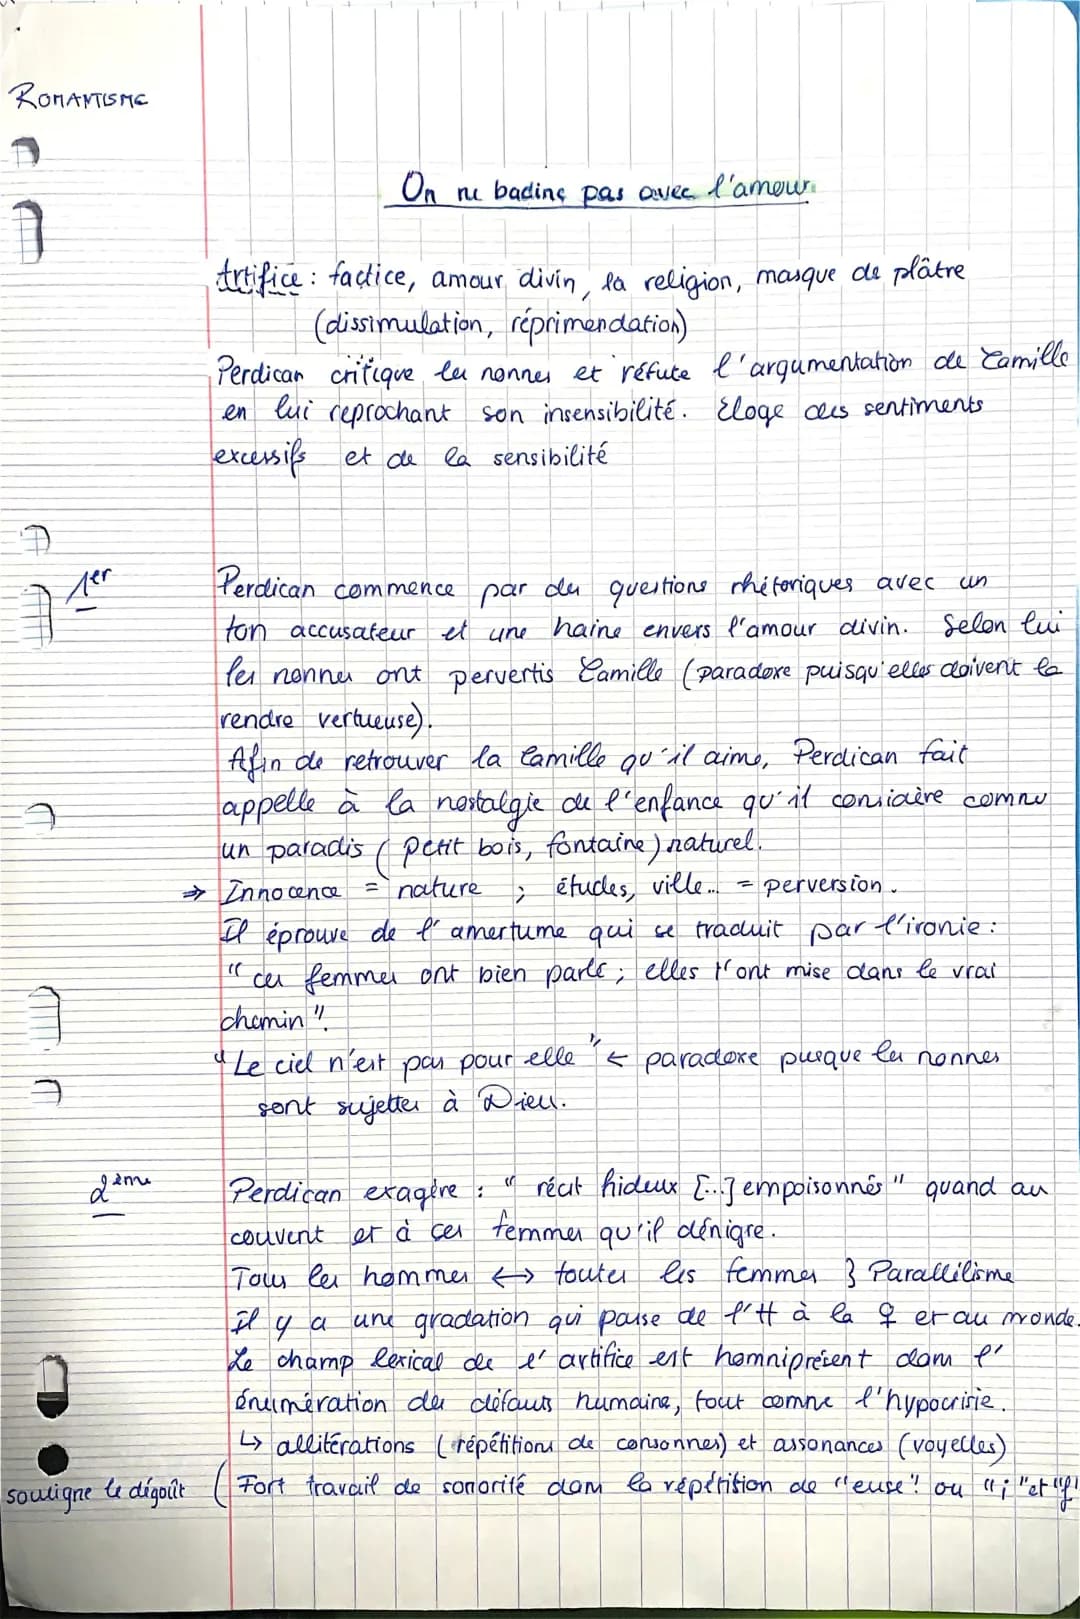 ROMANTISME
On ne badine pas avec l'amour.
Artifice : factice, amour divin, la religion, masque de plâtre
(dissimulation, réprimendation)
Perdican critique les nonnes et réfute l'argumentation de Camille
en lui reprochant son insensibilité. Éloge des sentiments
excessifs et de la sensibilité
1er
Perdican commence par des questions rhétoriques avec un
ton accusateur et une haine envers l'amour divin. Selon lui
les nonnes ont pervertis Camille (paradoxe puisqu'elles doivent la
rendre vertueuse).
Afin de retrouver la Camille qu'il aime, Perdican fait
appelle à la nostalgie de l'enfance qu'il considère comme
un paradis (petit bois, fontaine) naturel.
⇒ Innocence = nature ; études, ville... = perversion.
Il éprouve de l'amertume qui se traduit par l'ironie :
" ces femmes ont bien parlé ; elles t'ont mise dans le vrai
chemin ".
" Le ciel n'est pas pour elle " ← paradoxe puisque les nonnes
sont sujettes à Dieu.
2ème
Perdican exagère : " récit hideux [...] empoisonnés " quand au
couvent et à ces femmes qu'il dénigre.
Tous les hommes ↔ toutes les femmes } Parallélisme
Il y a une gradation qui passe de l'H à la ♀ et au monde.
Le champ lexical de l'artifice est homniprésent dans l'
énumération des défauts humains, tout comme l'hypocrisie.
↳ allitérations (répétitions de consonnes) et assonances (voyelles)
souligne le dégoût ( Fort travail de sonorité dans la répétition de "euse" ou "i" et "f"